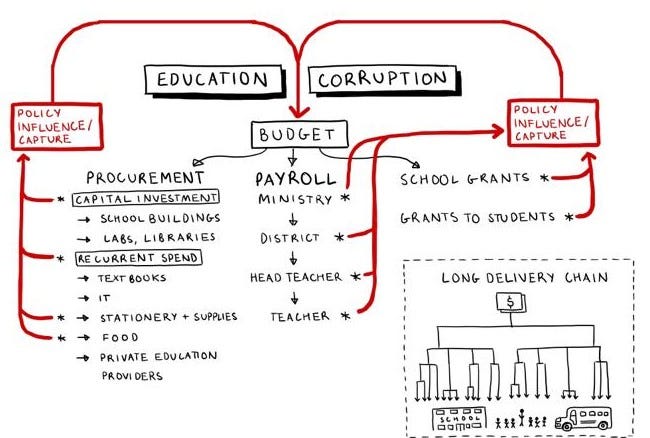 EDUCATION
CORRUPTION
POLICY
INFLUENCE/
CAPTURE
POLICY
INFLUENCE/
CAPTURE
BUDGET
PROCUREMENT
* CAPITAL INVESTMENT
→ SCHOOL BUILDINGS
→ LABS, LIBRARIES
* RECURRENT SPEND
→ TEXTBOOKS
→ IT
* → STATIONERY + SUPPLIES
* → FOOD
→ PRIVATE EDUCATION
PROVIDERS
PAYROLL
MINISTRY *
DISTRICT *
HEAD TEACHER *
TEACHER *
SCHOOL GRANTS *
GRANTS TO STUDENTS *
LONG DELIVERY CHAIN
$
SCHOOL